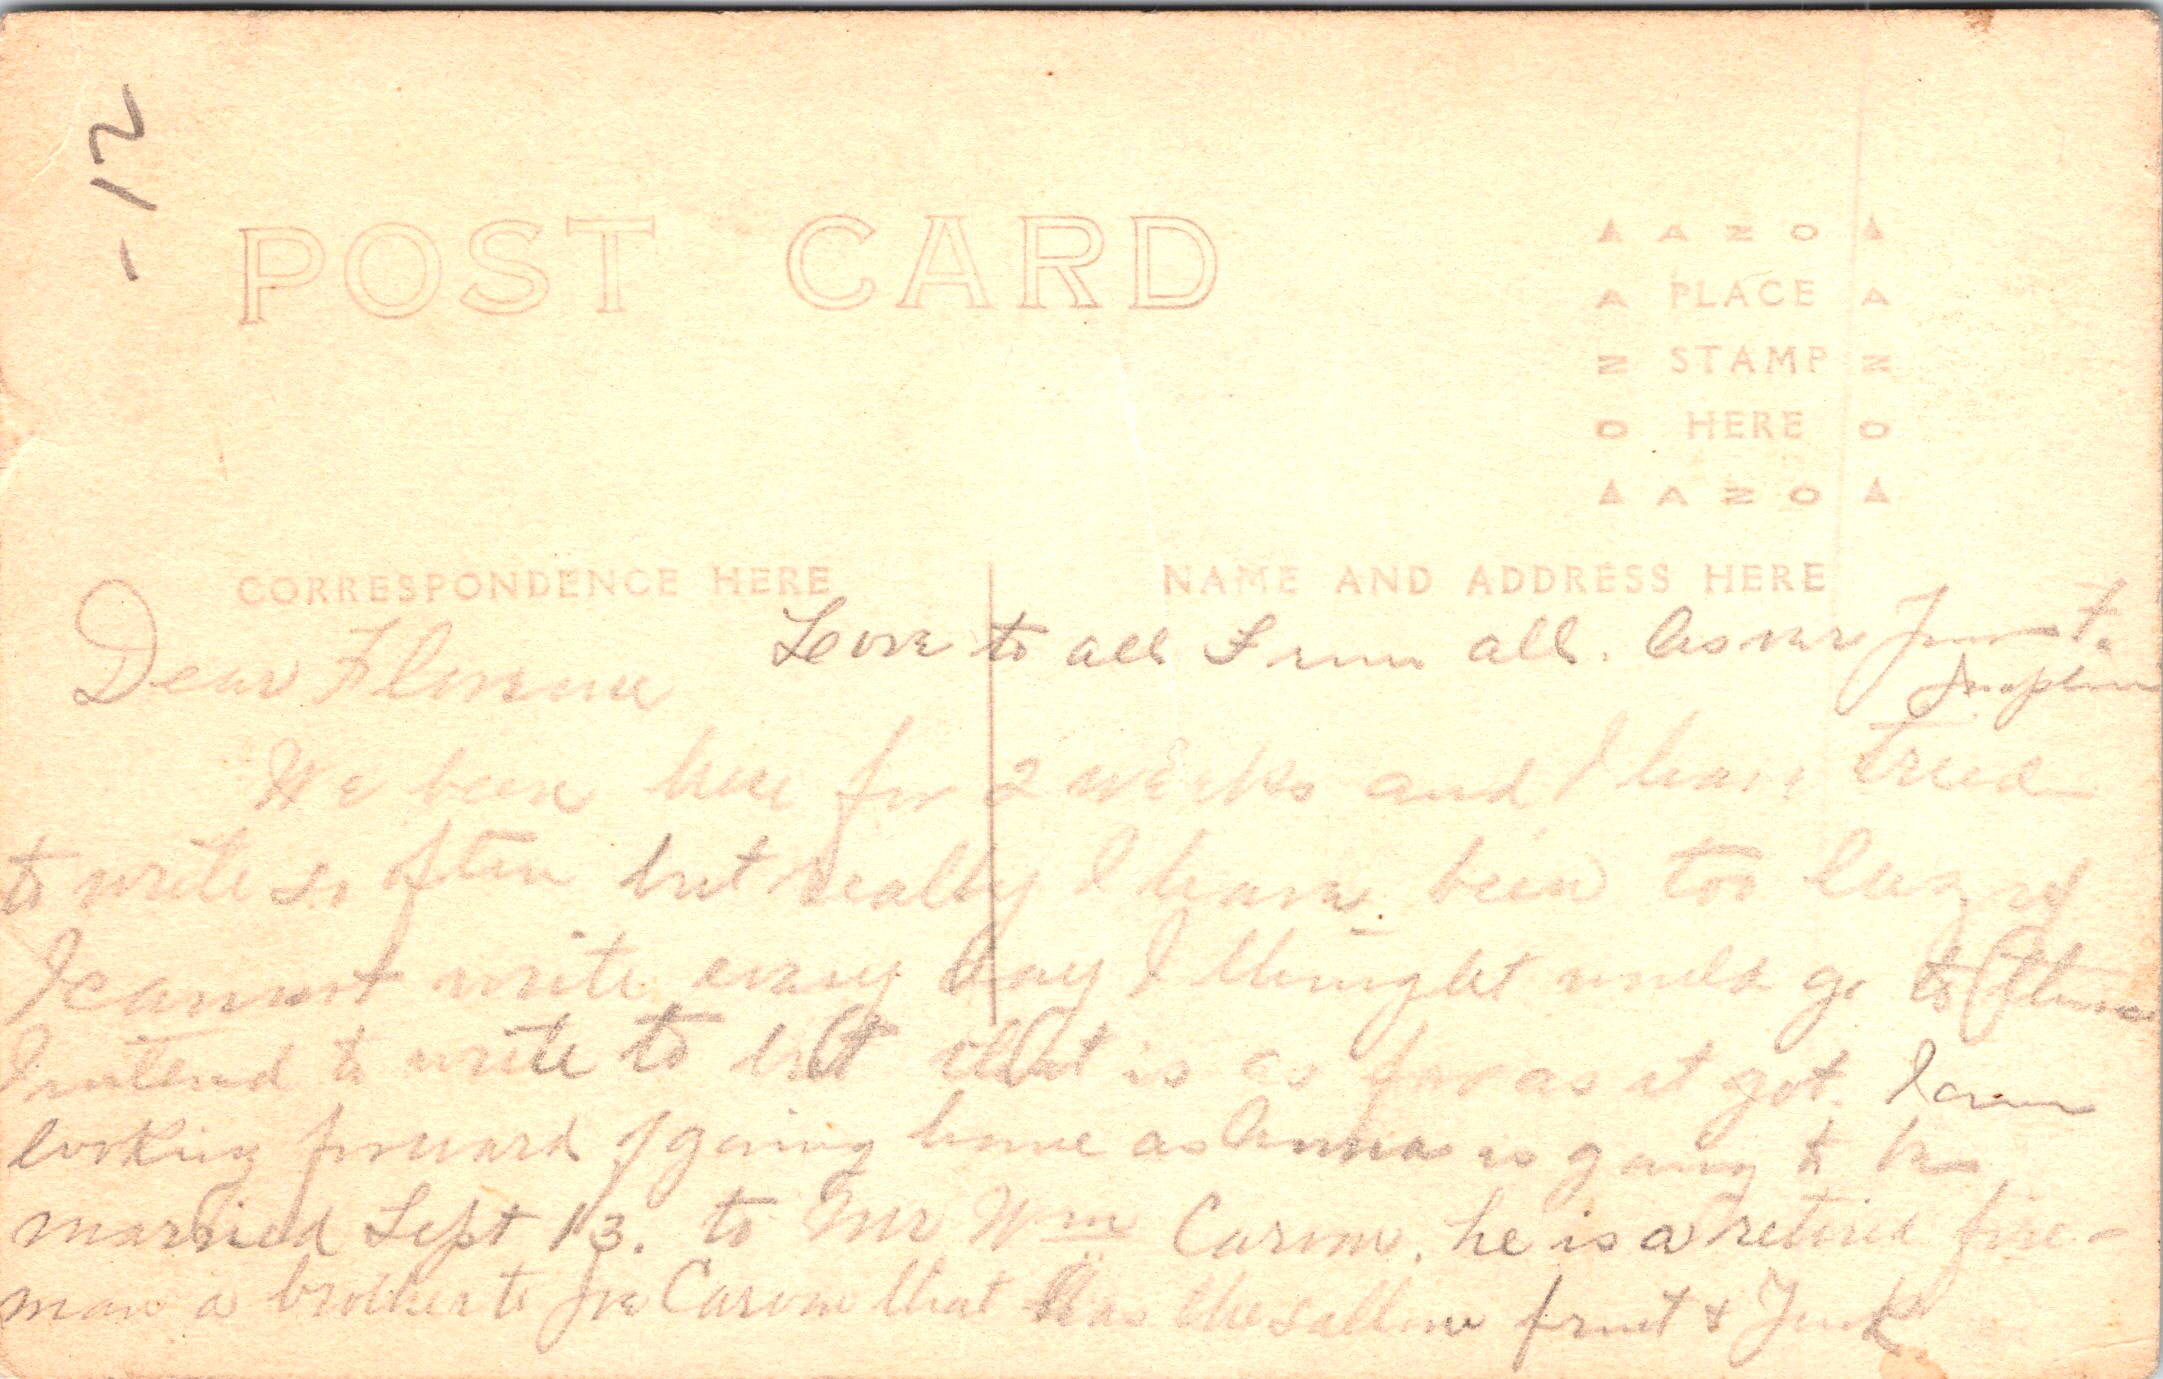 -12
POST CARD
AZO
PLACE
STAMP
HERE
AZO
CORRESPONDENCE HERE
NAME AND ADDRESS HERE
Love to all From all. As ever
Dear Florence
We been here for 2 weeks and I have tried
to write so often but really I have been too lazy
I cannot write every day I thought would go to those
I intend to write to but that is as far as it got. I am
looking forward of going home as Anna is going to be
married Sept 13. to Mr Wm he is a retired fire-
man a brother to Joe that has the saloon front &